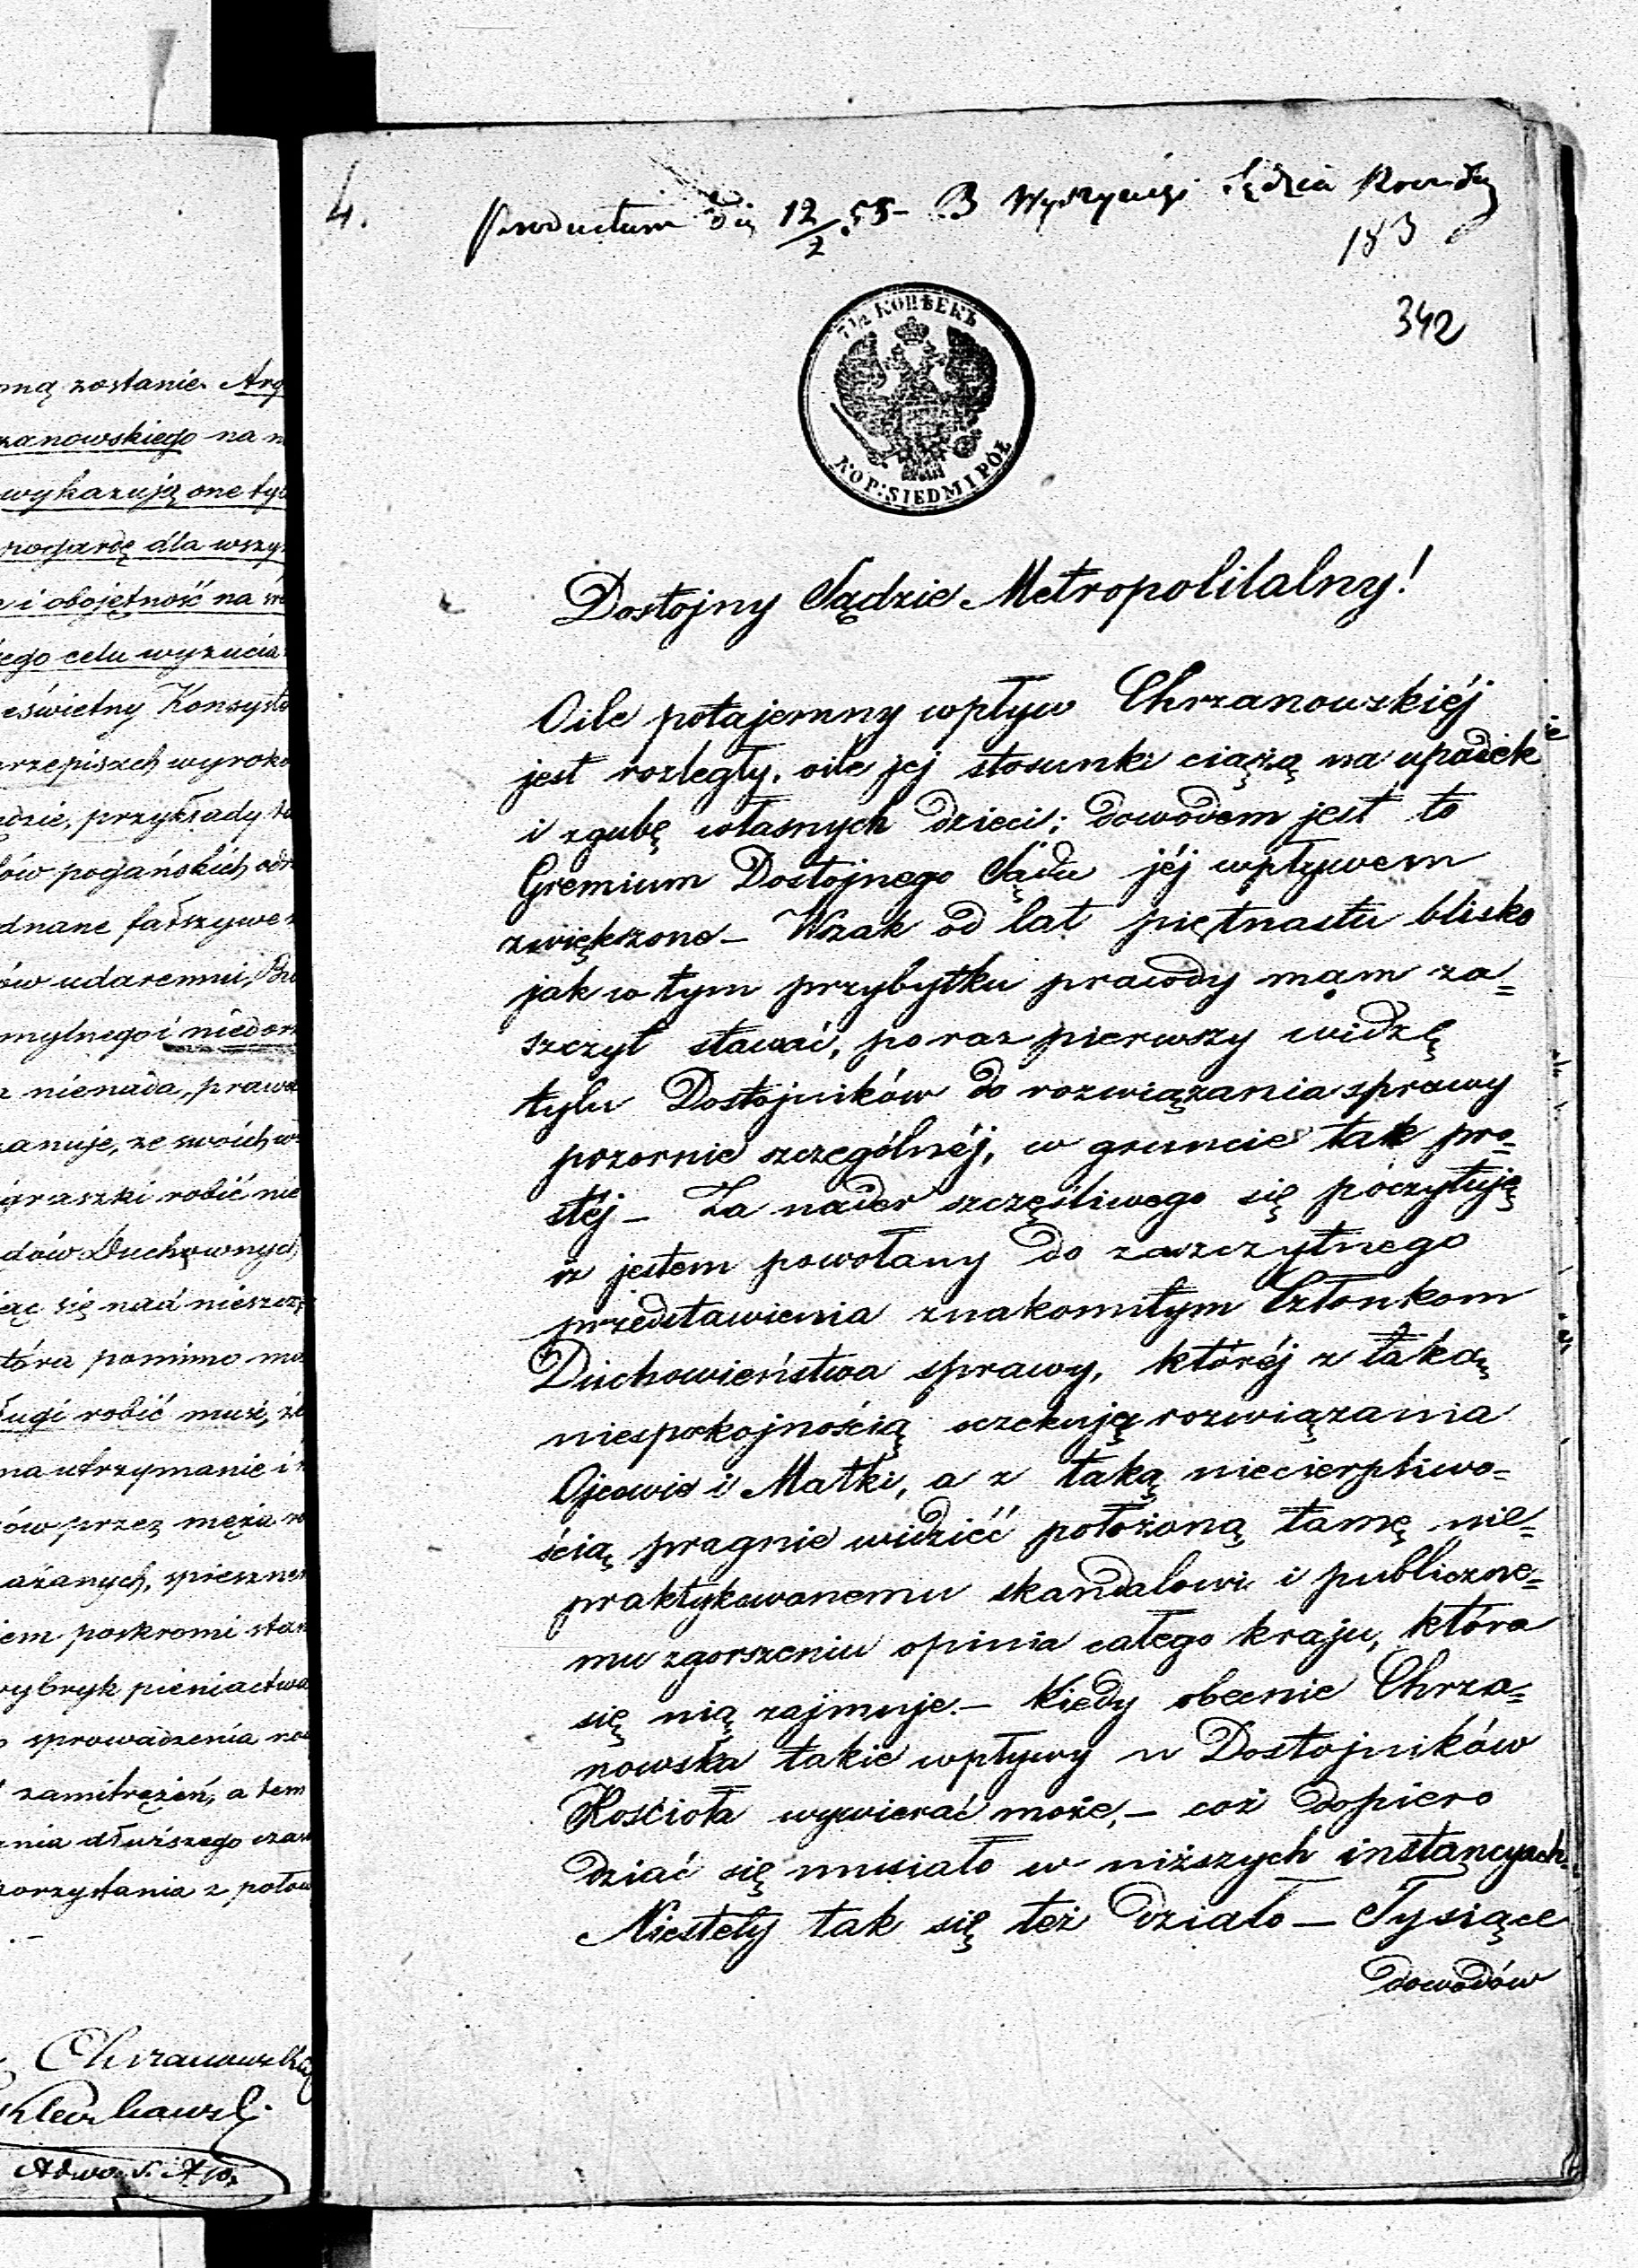 mną zostanie. Arg
zanowskiego na n
wykazują one tyl
pogardę dla wszy
e i obojętność na
iego celu wyzucia
eświetny Konsysto
przepisach wyroko
ędzie, przykłady
ów pogańskich odr
dnane fałszywe
ów udaremni,
mylnego i niedor
nienada, prawo
anuje, ze swoich w
igraszki robić nie
dów Duchownych,
jąc się nad nieszczę
która pomimo
ługi robić musi,
na utrzymanie i
ów przez męża
ażanych, spieszne
iem poskromi
wybryk pieniactwa
sprowadzenia
zamitrężeń, a tem
nia dłuższego
korzystania z
Chrzanowska
4.
Productum 12/2 55 B Wyszyński Sędzia
183
342
7 1/2 КОПѢЕКЪ
KOP: SIEDM I PÓŁ
Dostojny Sądzie Metropolitalny!
O ile potajemny wpływ Chrzanowskiéj
jest rozległy, oile jej stosunki ciążą na upadek
i zgubę własnych dzieci; dowodem jest to
Gremium Dostojnego Sądu jéj wpływem
zwiększone – Wszak od lat piętnastu blisko
jak w tym przybytku prawdy mam za=
szczyt stawać, po raz pierwszy widzę
tylu Dostojników do rozwiązania sprawy
pozornie szczególnéj, w gruncie tak pro=
stéj – Za nader szczęśliwego się poczytuję
iż jestem powołany do zaszczytnego
przedstawienia znakomitym Członkom
Duchowieństwa sprawy, któréj z taką
niespokojnością oczekują rozwiązania
Ojcowie i Matki, a z taką niecierpliwo=
ścią pragnie widzieć położoną tamę nie=
praktykowanemu skandalowi i publiczne=
mu zgorszeniu opinia całego kraju, która
się nią zajmuje. – Kiedy obecnie Chrza=
nowska takie wpływy u Dostojników
Kościoła wywierać może, – coż dopiero
dziać się musiało w niższych instancyach.
Niestety tak się też działo – Tysiące
dowodów